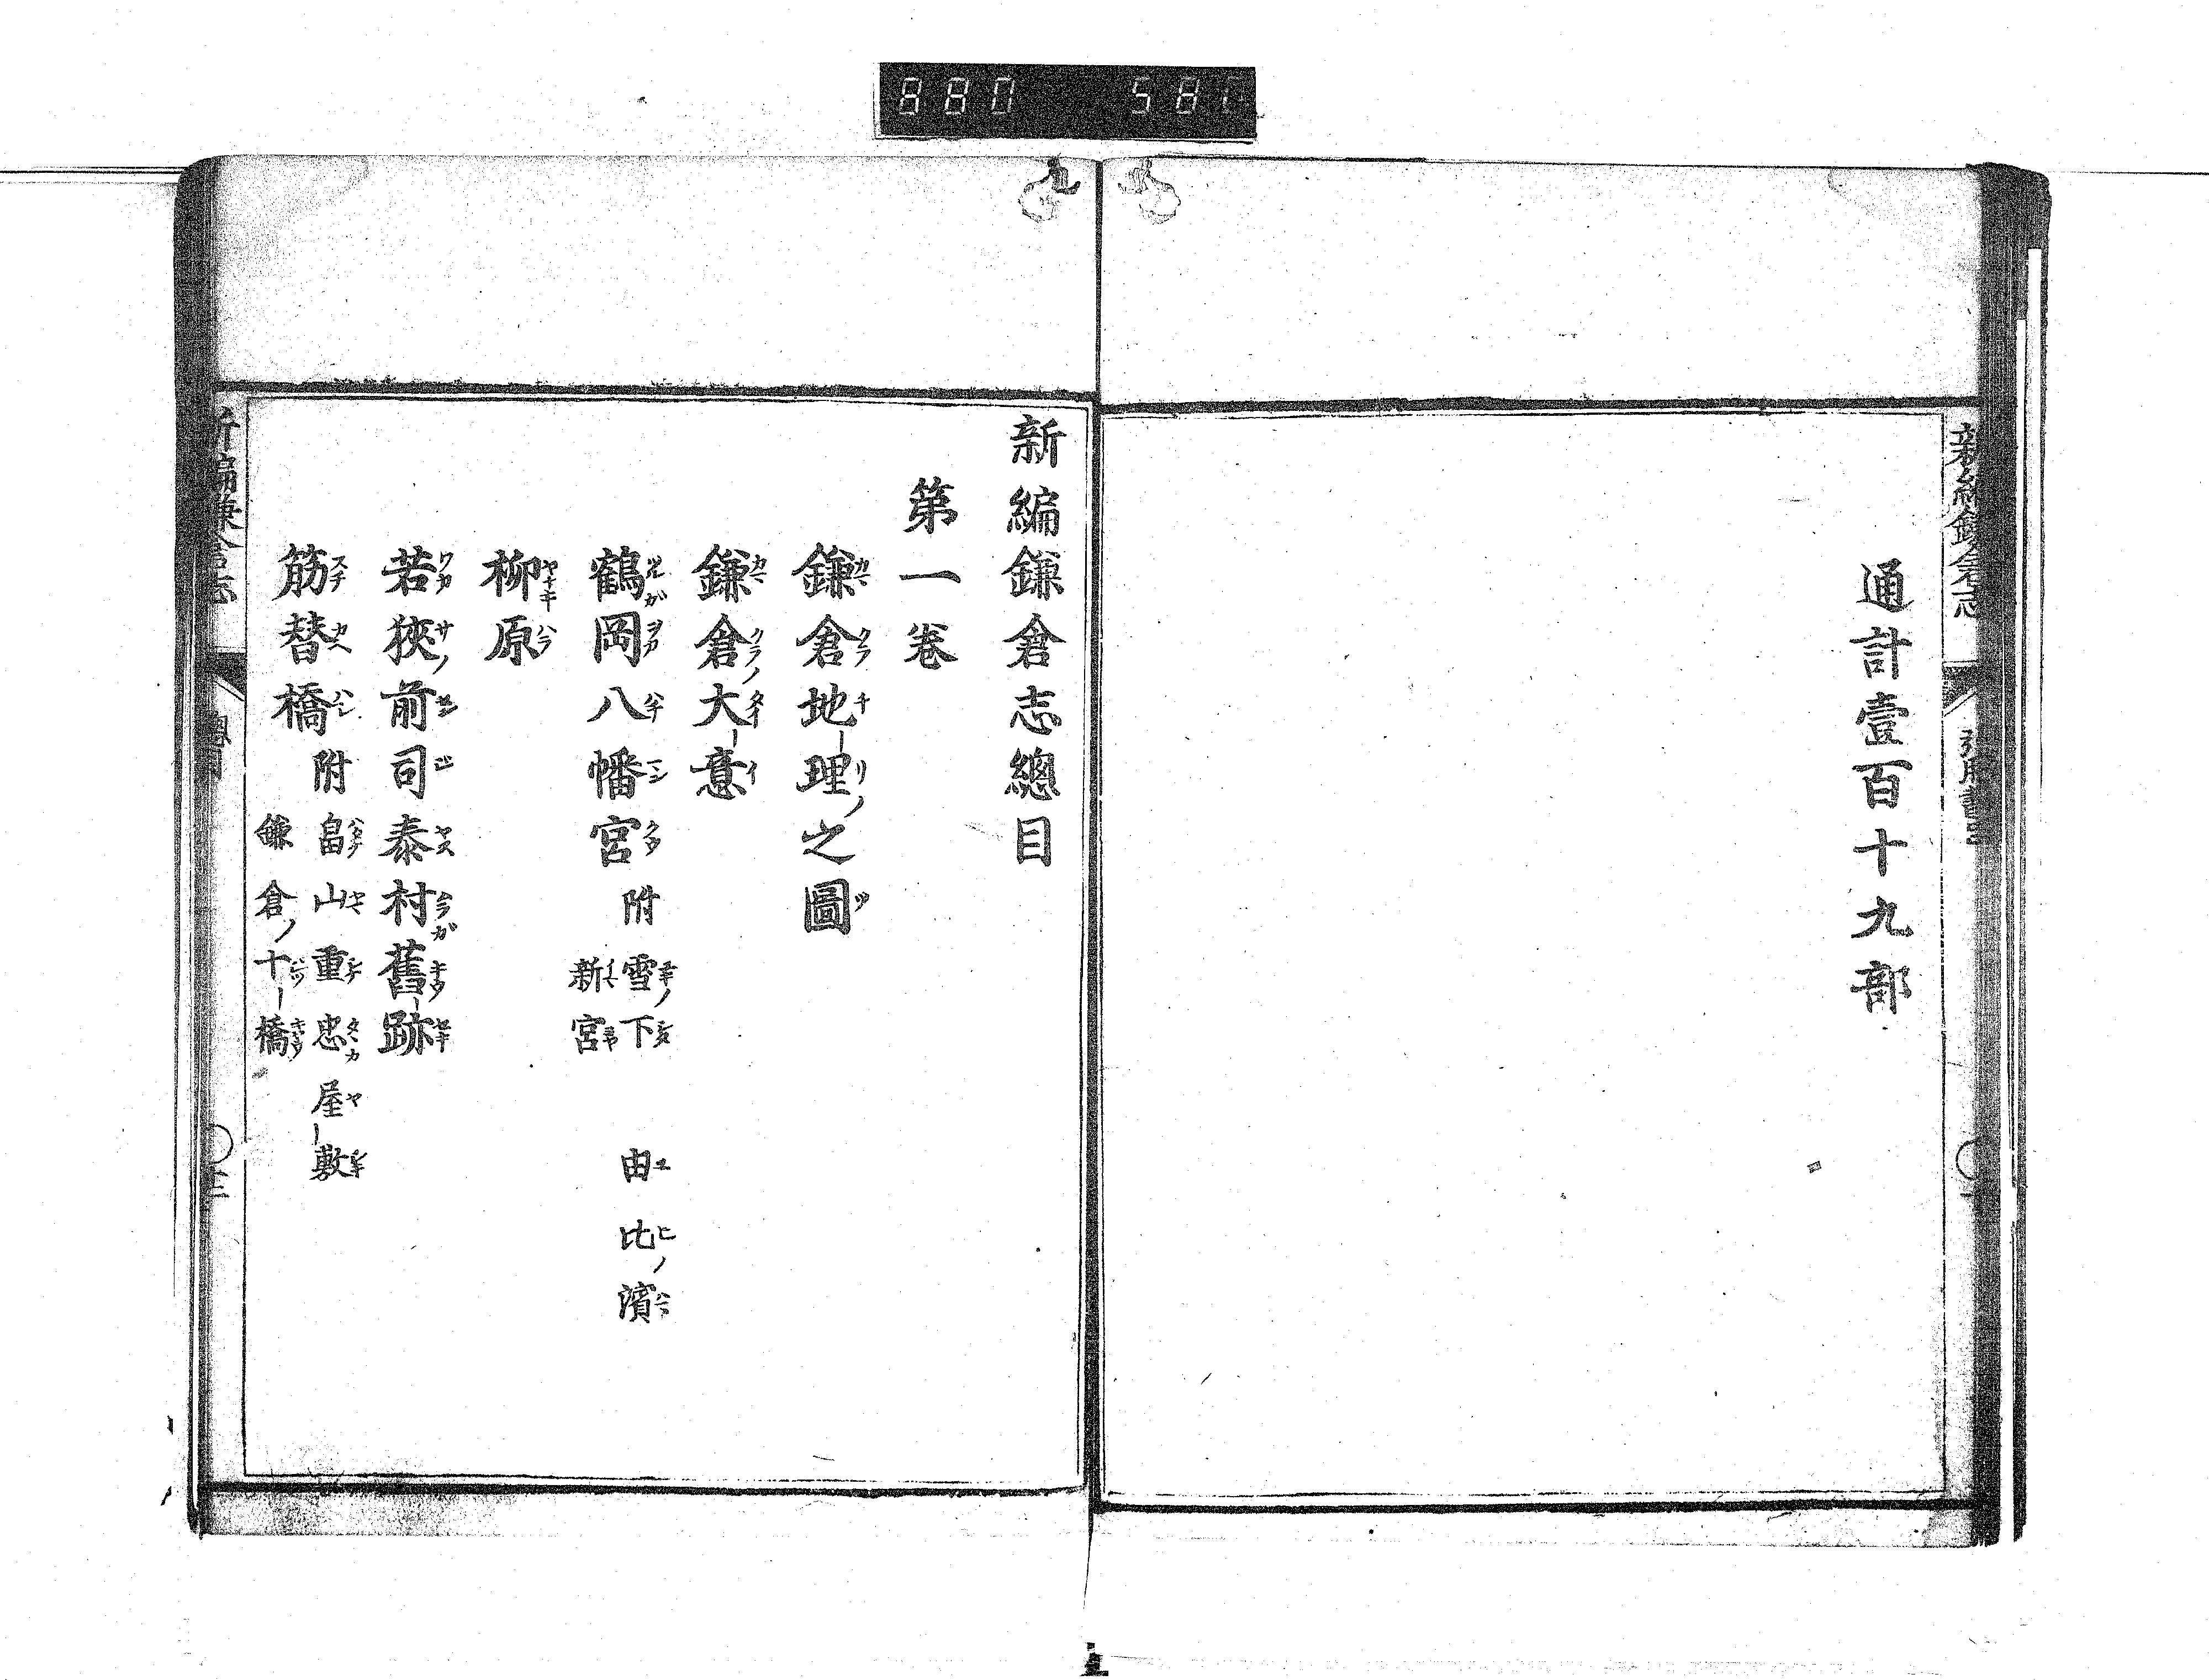 880 581
新編鎌倉志
通計壹百十九部
新編鎌倉志總目
第一卷
鎌倉地理之圖
鎌倉大意
鶴岡八幡宮 附 雪下 由比濱
新宮
柳原
若狹前司泰村舊跡
筋替橋 附 畠山重忠屋敷
鎌倉十橋
新編鎌倉志 總目